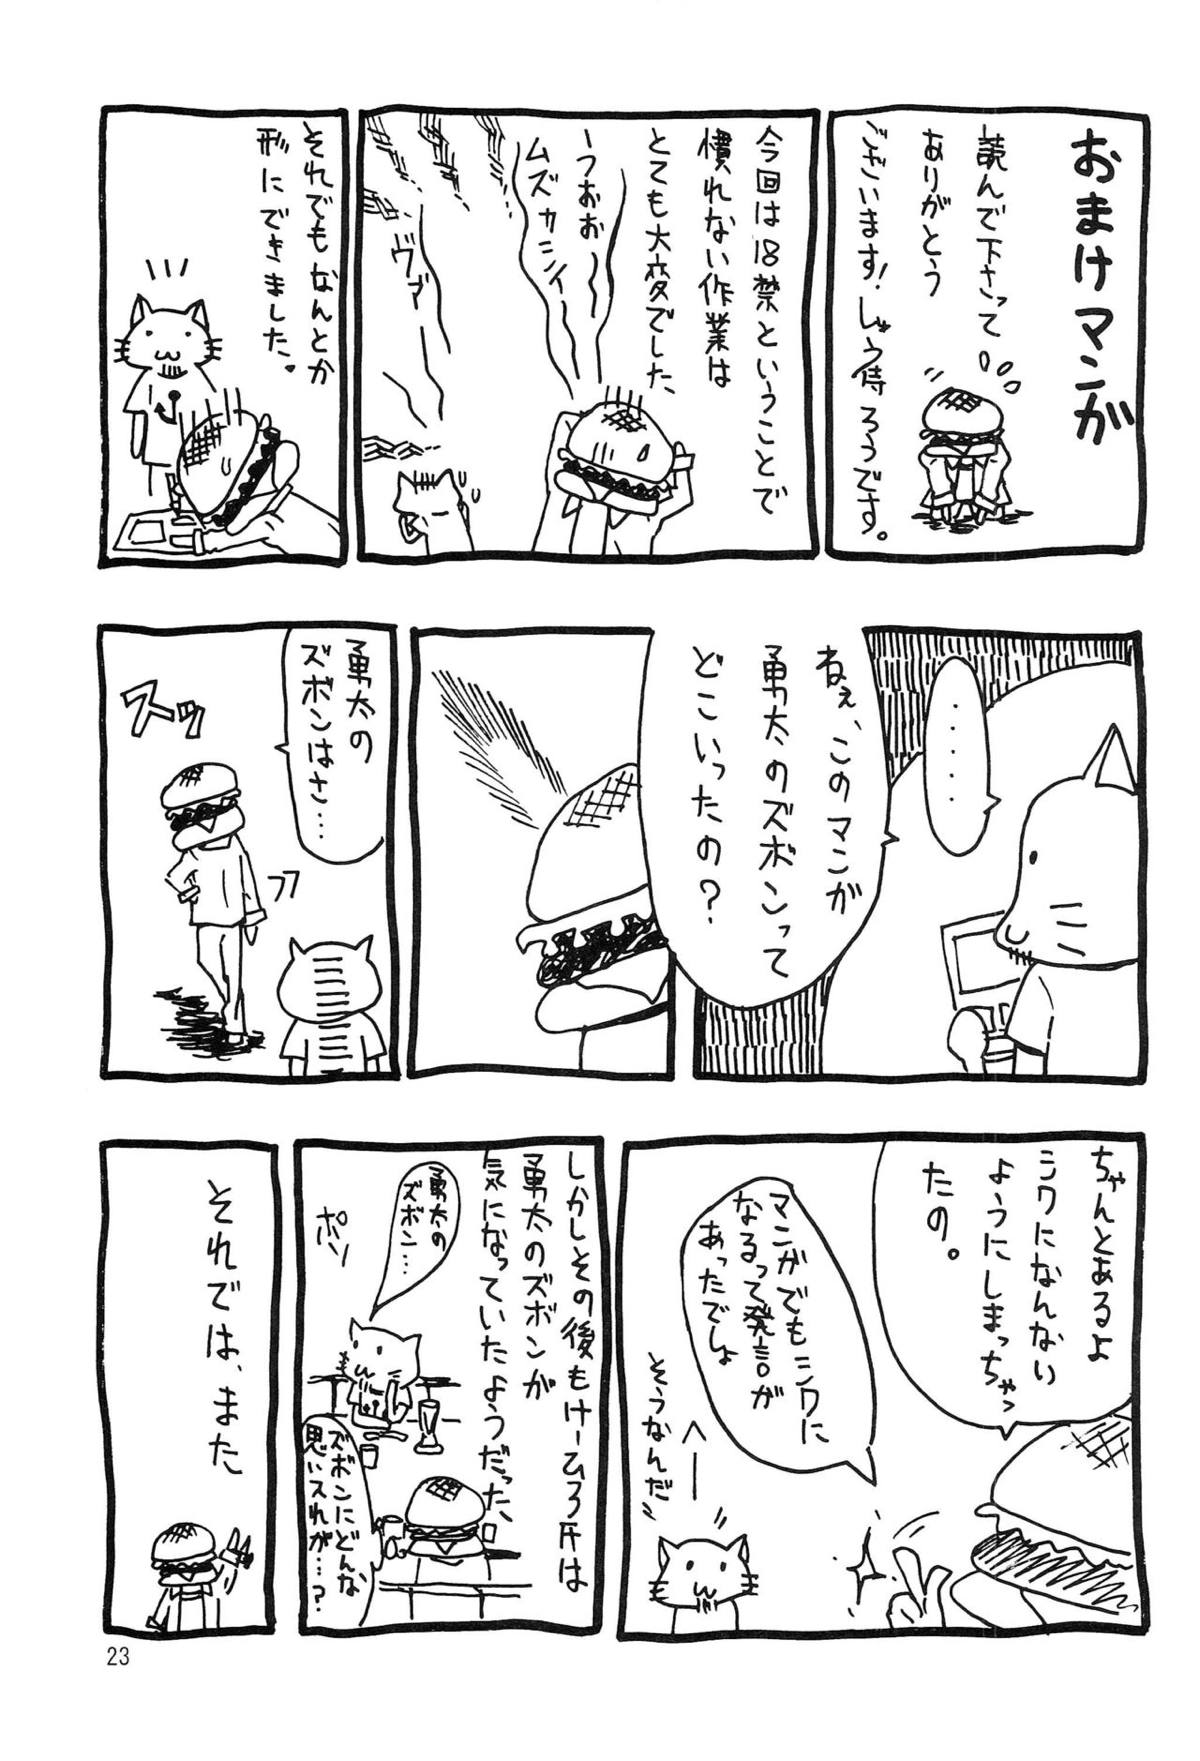 おまけマンガ
読んで下さって
ありがとう
ございます!しゅう侍ろうです。
今回は18禁ということで
慣れない作業は
とても大変でした
うおお〜
ムズカシイー
ヴァー
それでもなんとか
形にできました。
・・・・・
ねぇ、このマンガ
勇太のズボンって
どこいったの?
勇太の
ズボンはさ…
スッ
フフ
ちゃんとあるよ
シワになんない
ようにしまっちゃっ
たの。
マンガでもシワに
なるって発言が
あったでしょ
へー
そうなんだ
しかしその後もけーひろ氏は
勇太のズボンが
気になっていたようだった
勇太の
ズボン…
ポソ
ズボンにどんな
思い入れが…?
それでは、また
23